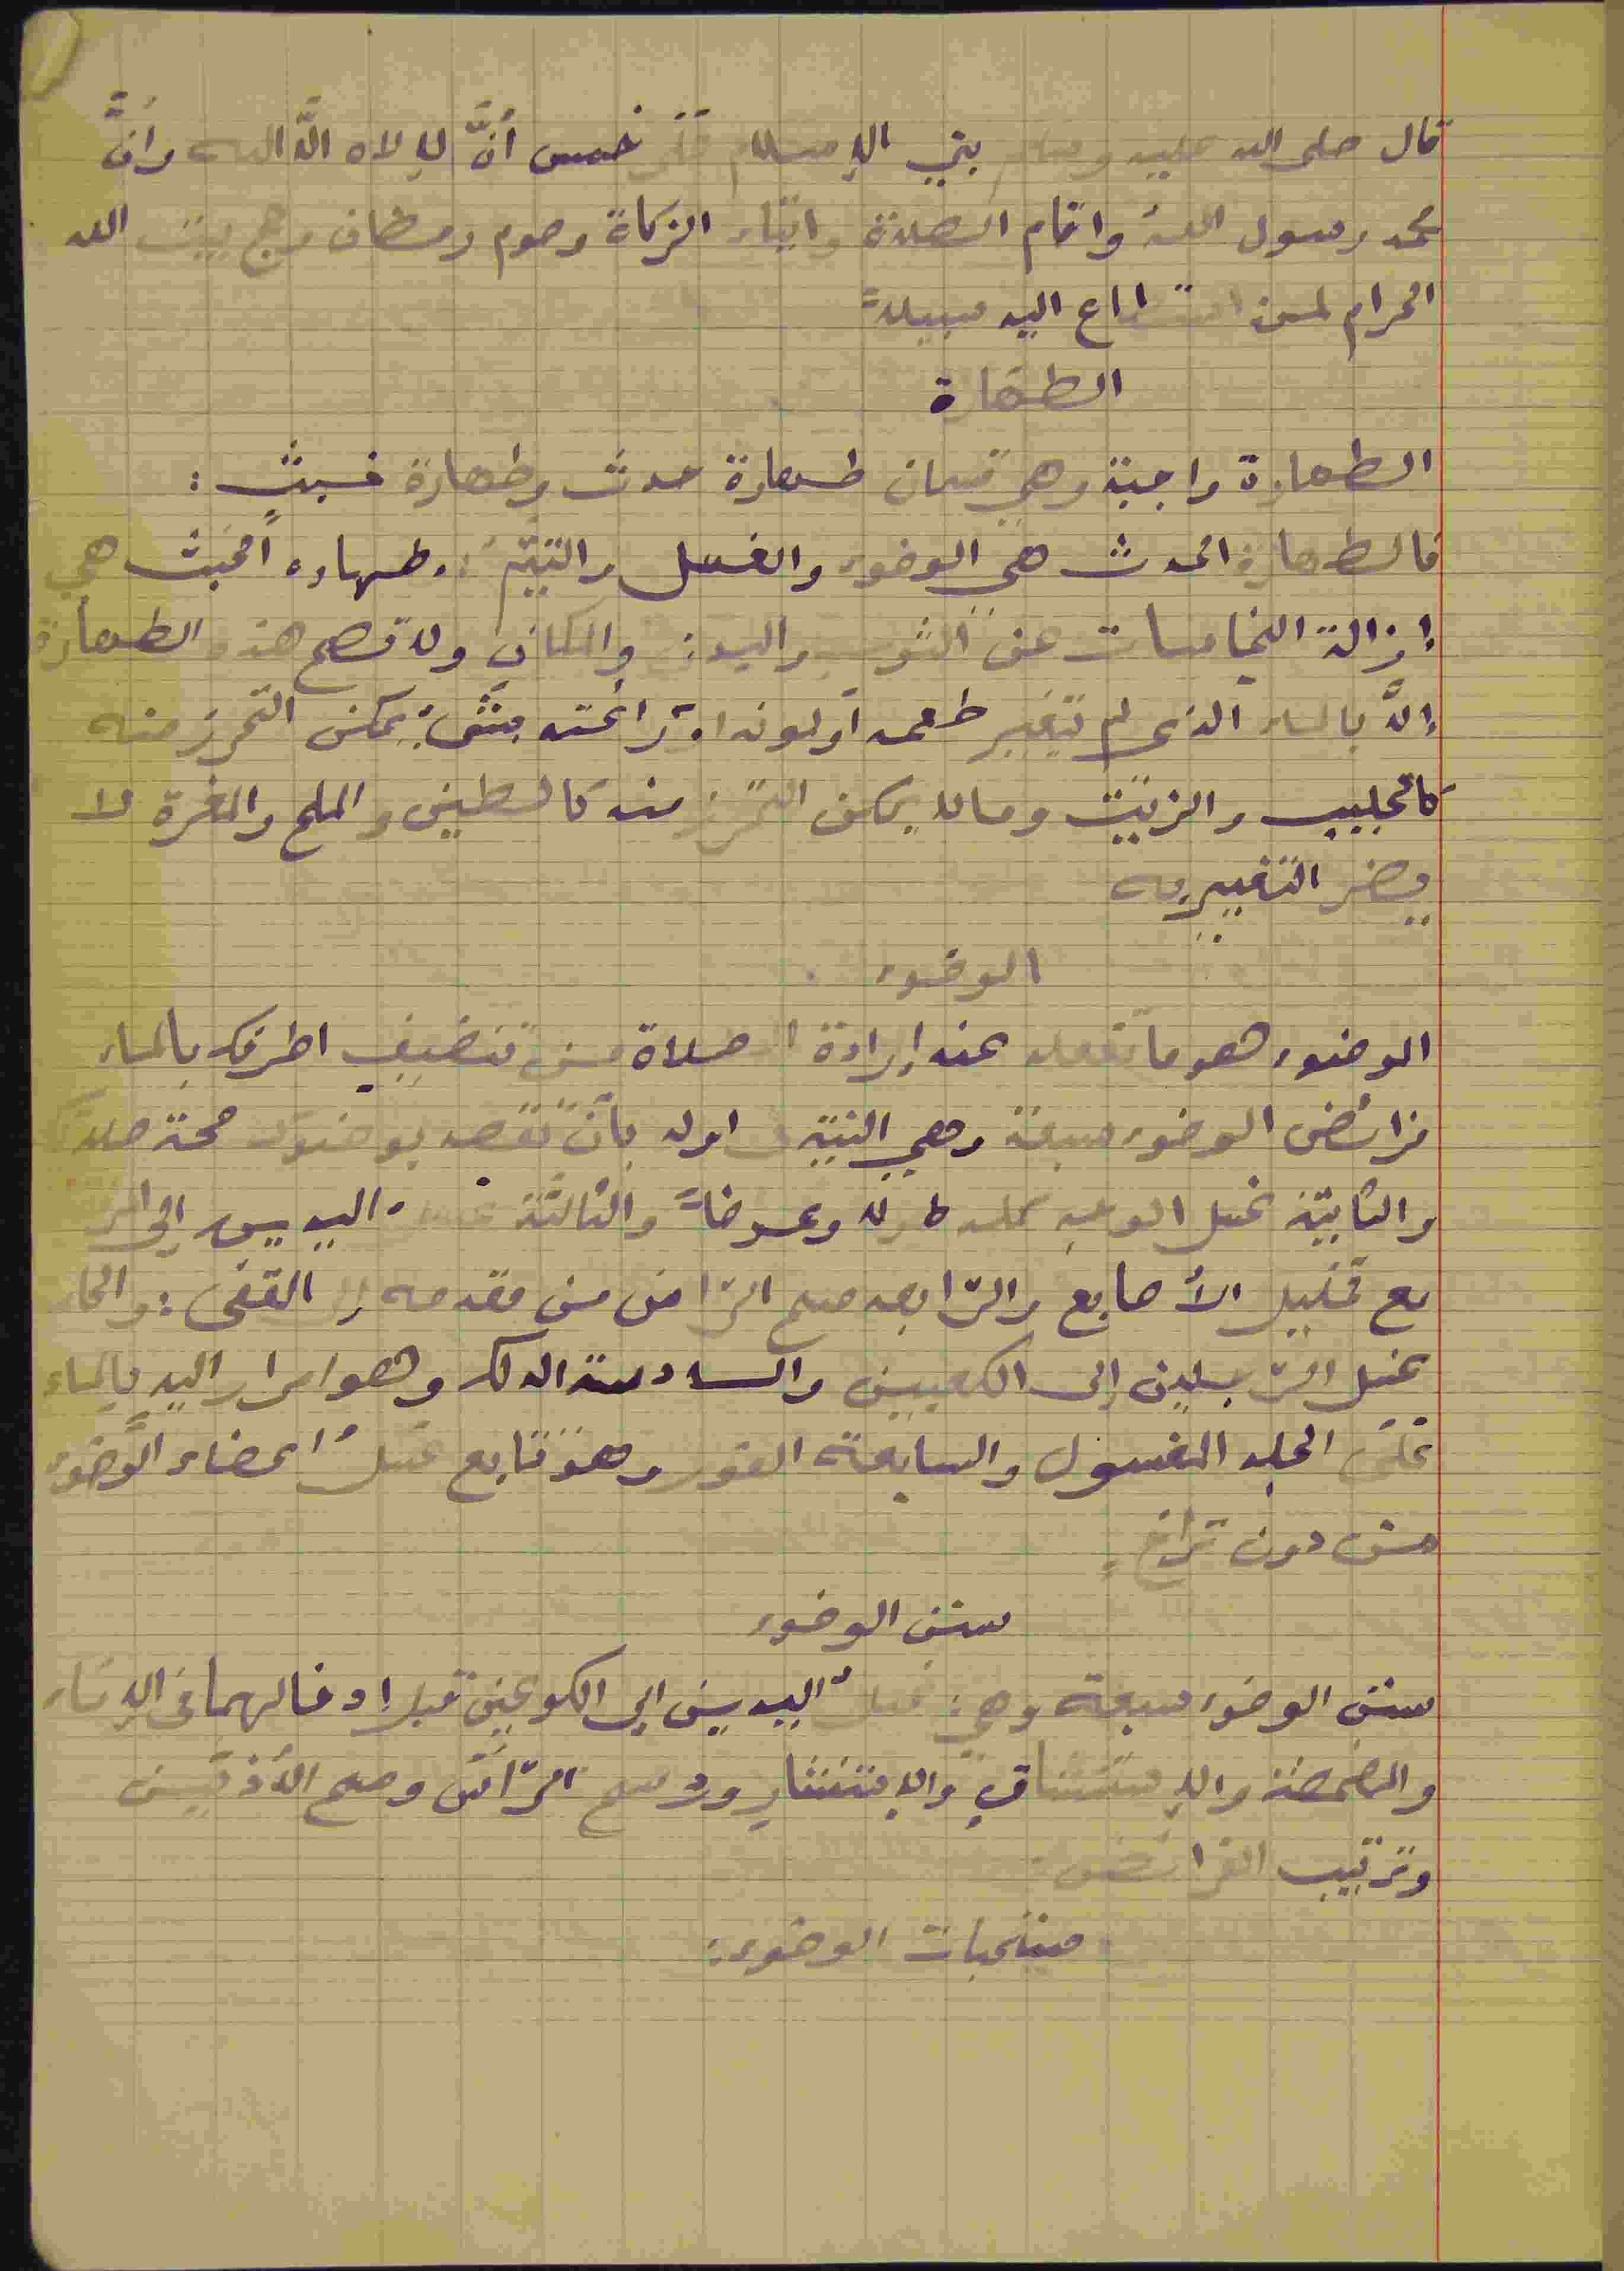 قال صلى الله عليه وسلم بني الإسلام على خمس أنَّ لا إلاه الَّا الله وأنَّ
محمد رسول اللهُ واقام الصلاة وايتاء الزكاة وصوم رمضان وحج بيت الله
الحرام لمن استطاع اليه سبيلاً
الطهارة
الطهارة واجبة وهي قسمان طهارة حدث وطهارة خبثٍ :
فالطهارة الحدث هي الوضوء والغسل والتيمّم وطهاره الخبث هي
إزالة النجاسات عن الثوب والبدن والمكان ولا تصح هذه الطهارة
إلَّا بالماء الذي لم يتغير طعمه أو لونه او رائحته بشئ يمكن التحرز منه
كالحليب والزيت وما لا يمكن التحرز منه كالطين والملح والمغرة لا
يضر التغيير به
الوضوء
الوضوء هو ما تفعله عند إرادة الصلاة من تنضيف اطرفك بالماء
فرائض الوضوء سبعة وهي النية في اوله بأن تقصد بوضوئك صحة صلاتك
والثانية غسل الوجه كله طوله وعرضاً والثالثة غسل اليديين إلى
مع تخليل الأصابع والرّابعه مسح الرّاس من مقدمه إلى القفى : والخا
غسل الرّجلين إلى الكعبين والسادسة الدلك وهو امرار اليد بالماء
على الجلد المغسول والسابعة الفور وهو تتابع غسل اعضاء الوَضوء
من دون تراخٍ
سنن الوضوء
سنن الوضوء سبعة وهي : غسل اليديين الى الكوعين قبل ادخالهما في الإناء
والمضمضة والإستنشاق والإستنثار ورد مسح الرّأس ومسح الأذنين
وترتيب الفرائض
مستحبات الوضوء :